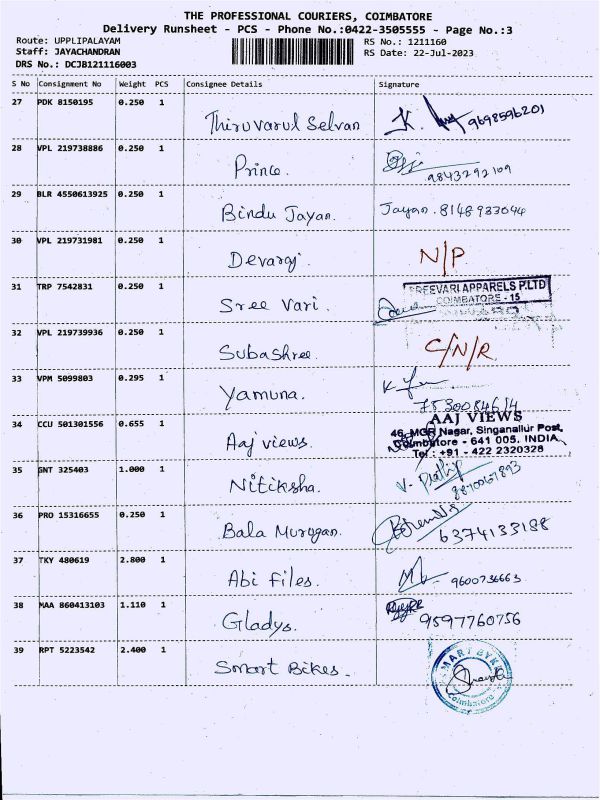 THE PROFESSIONAL COURIERS, COIMBATORE
Delivery Runsheet - PCS - Phone No.:0422-3505555 - Page No.:3
Route: UPPLIPALAYAM RS No.: 1211160
Staff: JAYACHANDRAN RS Date: 22-Jul-2023
DRS No.: DCJB121116003
S No Consignment No Weight PCS Consignee Details Signature
27 PDK 8150195 0.250 1 Thiruvarul Selvan K. 9698596201
28 VPL 219738886 0.250 1 Prince. 9843292109
29 BLR 4550613925 0.250 1 Bindu Jayan. Jayan. 8148933044
30 VPL 219731981 0.250 1 Devaraj. N/P
31 TRP 7542831 0.250 1 Sree Vari. SREEVARI APPARELS P.LTD
COIMBATORE - 15
32 VPL 219739936 0.250 1 Subashree. C/N/R
33 VPM 5099803 0.295 1 Yamuna.
34 CCU 501301556 0.655 1 Aaj views. AAJ VIEWS
46, MGR Nagar, Singanallur Post,
Coimbatore - 641 005. INDIA
Tel : +91 - 422 2320328
35 GNT 325403 1.000 1 Nitiksha. 8870067893
36 PRO 15316655 0.250 1 Bala Murugan. 6374133188
37 TKY 480619 2.800 1 Abi Files. 9600736663
38 MAA 860413103 1.110 1 Gladys. 9597760756
39 RPT 5223542 2.400 1 Smart Bikes. SMART BYKES
Coimbatore